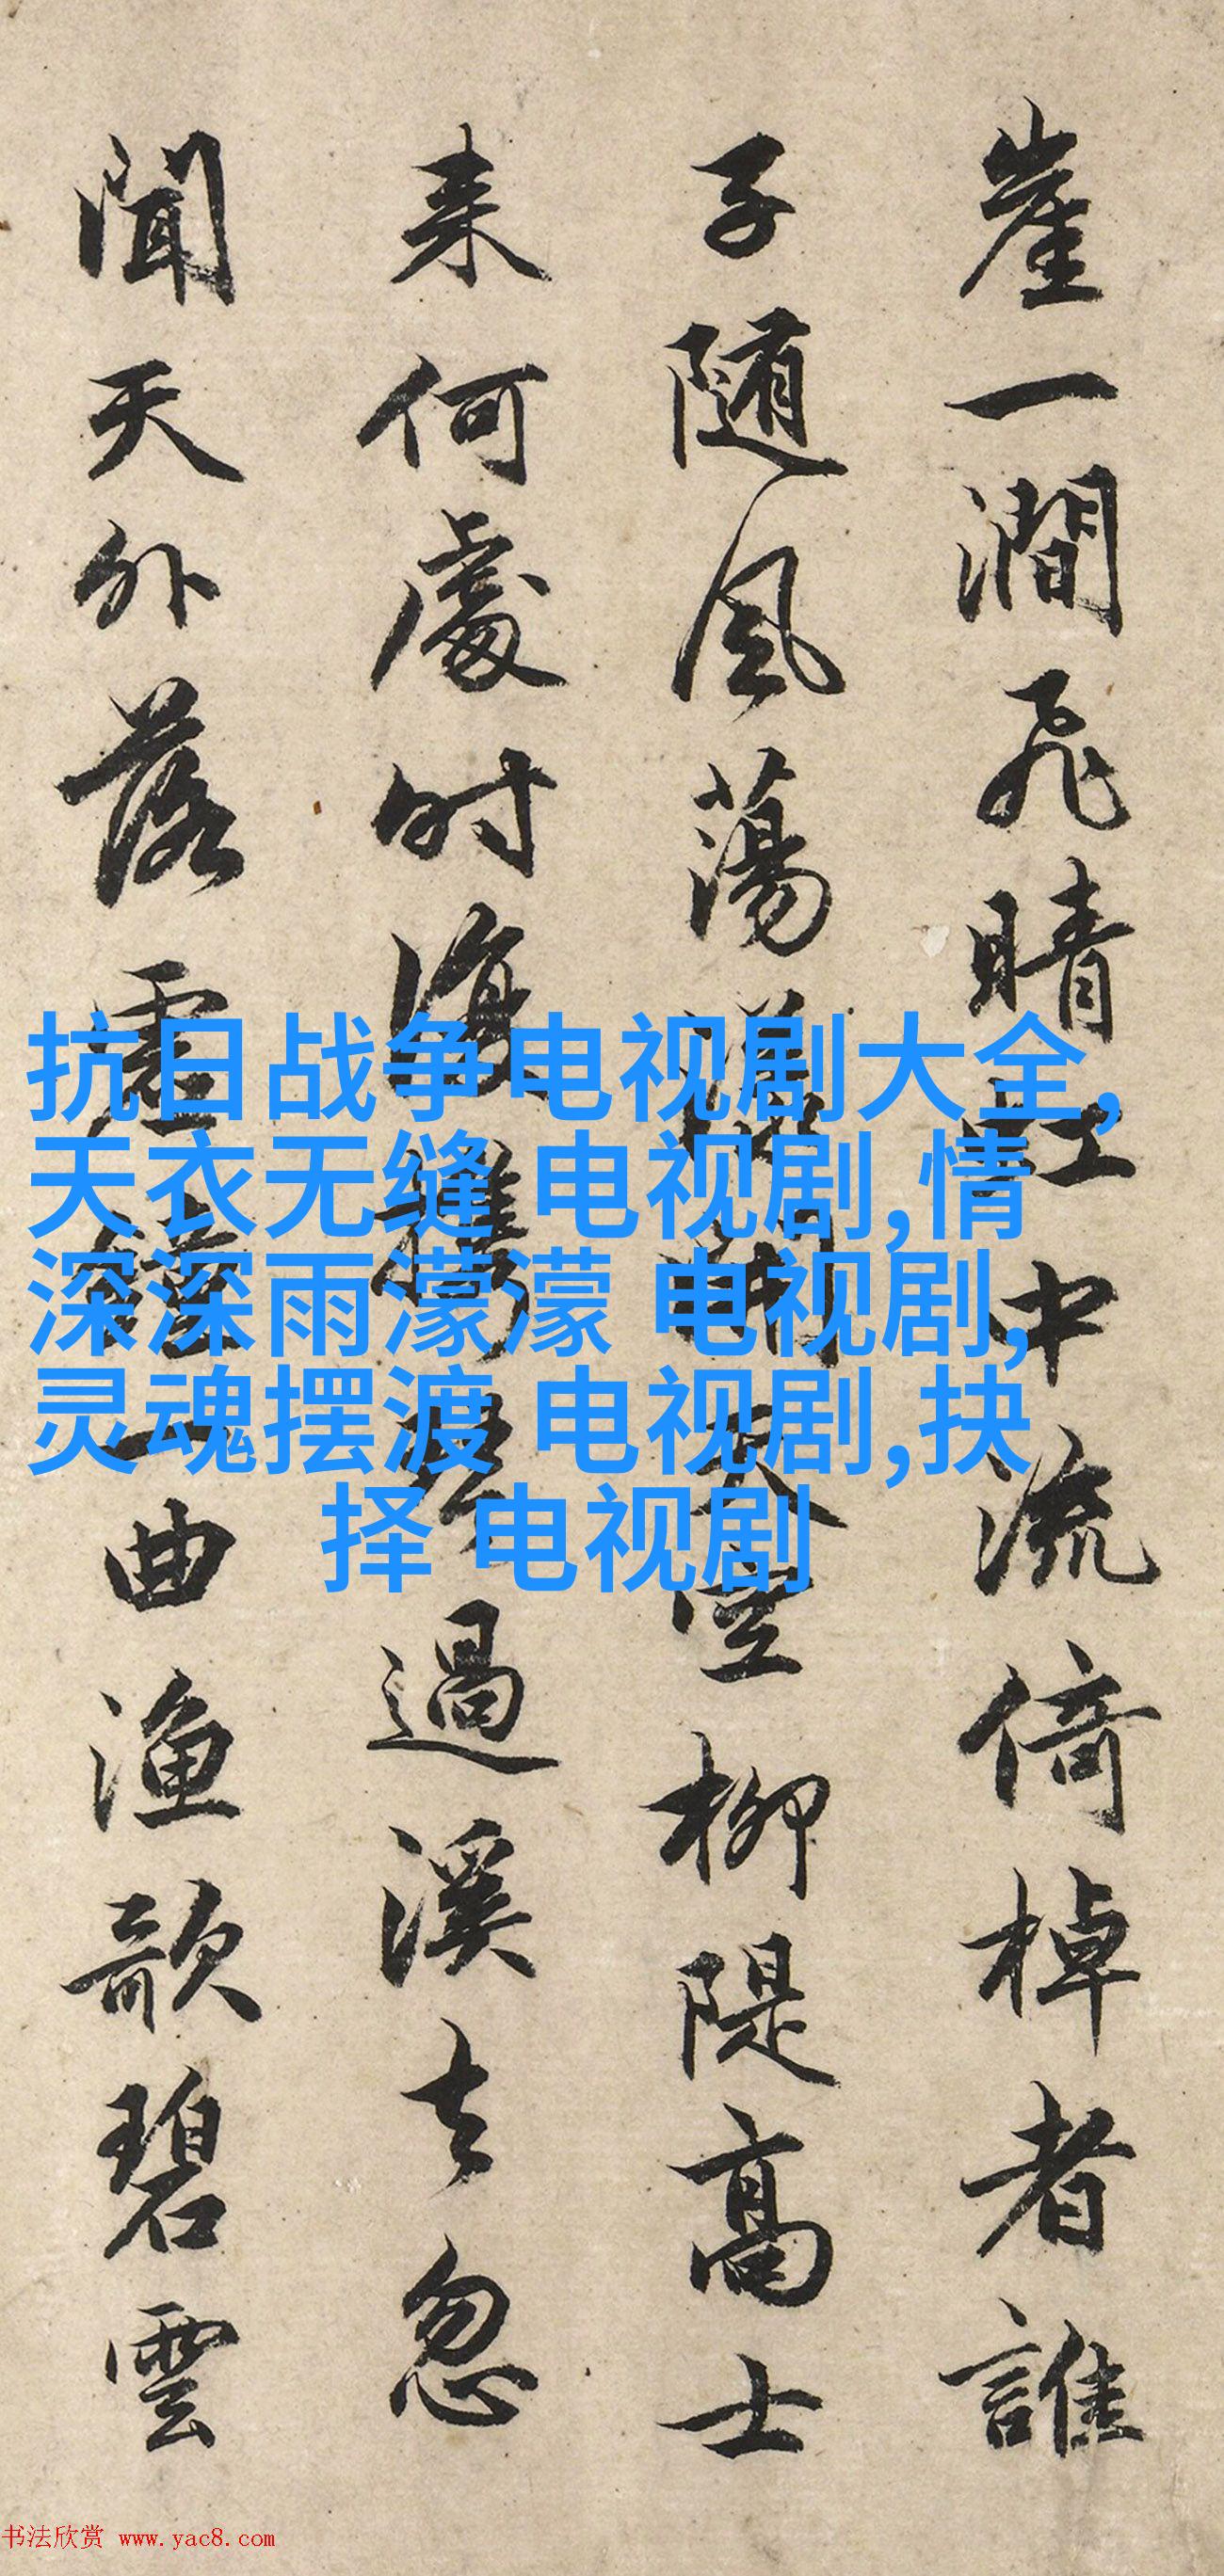 崖一澗飛晴虹中流倚棹者誰
子随風蕩漾湖天空柳隄高士
来何處时復攜琴過溪去忽
聞天外落虗鐘一曲漁歌碧雲
抗日战争电视剧大全,
天衣无缝 电视剧,情
深深雨濛濛 电视剧,
灵魂摆渡 电视剧,抉
择 电视剧
书法欣赏 www.yac8.com